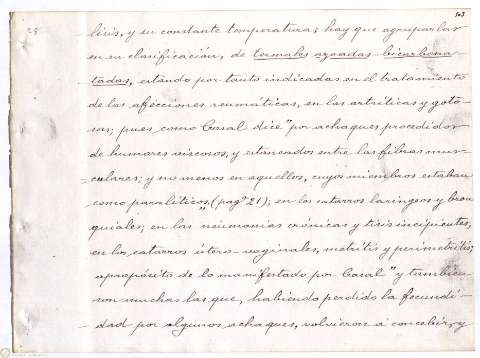 28 303
lisis, y su constante temperatura; hay que agruparlas
en su clasificación, de termales azoadas-bicarbona-
tadas, estando por tanto indicadas en el tratamiento
de las afecciones reumáticas, en las artríticas y goto-
sas; pues como Casal dice "por achaques procedidos
de humores viscosos, y estancados entre las fibras mus-
culares; y no menos en aquellos, cuyos miembros estaban
como paralíticos," (pagª 21); en los catarros laringeos y bron-
quiales; en las neumonias crónicas y tisis incipientes,
en los catarros útero-vaginales, metritis y perimetritis;
apropósito de lo manifestado por Casal "y tambien
son muchas las que, habiendo perdido la fecundi-
dad por algunos achaques, volvieron á concebir, y